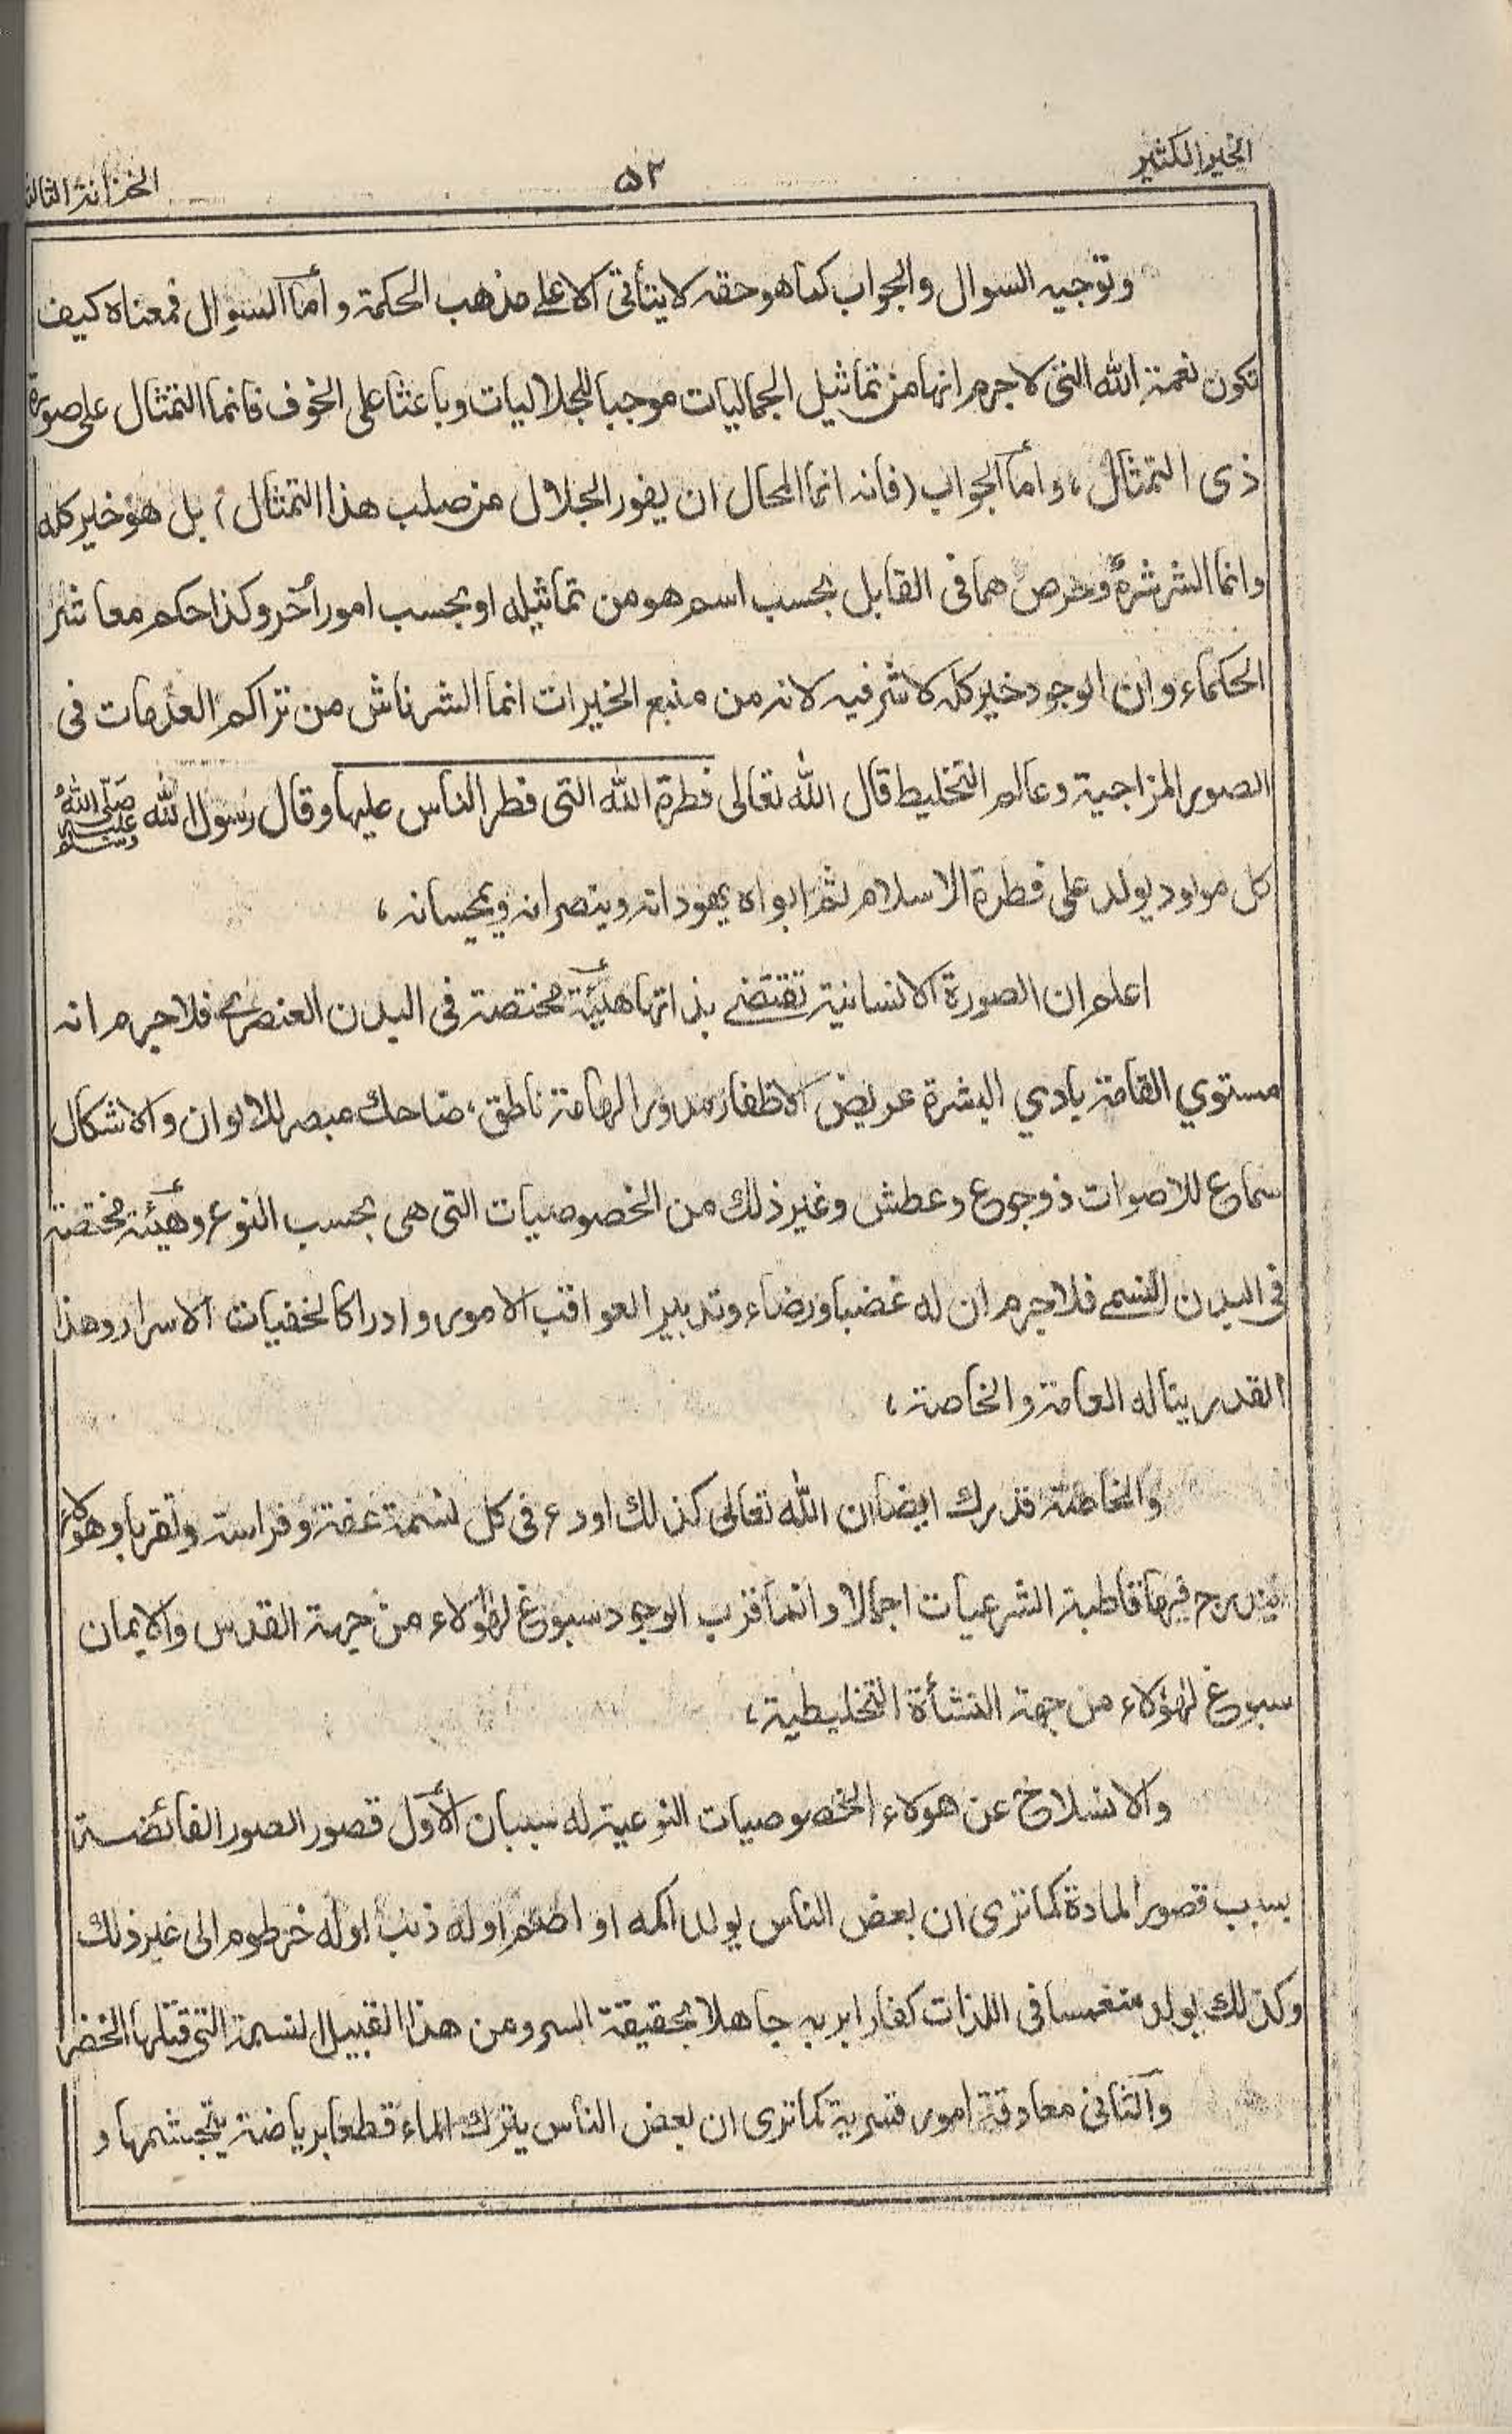 الخير الكثير
٥٢
الخزانة الثالثة
وتوجيه السوال والجواب كما هو حقه لا يتأتى الا على مذهب الحكمة و أما السوال فمعناه كيف
تكون نعمة الله التى لا جرم انها من تماثيل الجماليات موجبا للجلاليات وباعثا على الخوف فانما التمثال على صورة
ذى التمثال، وأما الجواب (فانه انما المحال ان يفور الجلال من صلب هذا التمثال) بل هو خير كله
وانما الشر شرهٌ وحرص هما فى القابل بحسب اسم هو من تماثيله او بحسب امور أخر وكذا حكم معاشر
الحكماء وان الوجود خير كله لا شر فيه لانه من منبع الخيرات انما الشر ناش من تراكم العدمات فى
الصور المزاجية وعالم التخليط قال الله تعالى فطرة الله التى فطر الناس عليها وقال رسول الله صلى الله عليه وسلم
كل مولود يولد على فطرة الاسلام ثم ابواه يهودانه وينصرانه ويمجسانه،
اعلم ان الصورة الانسانية تقتضے بذاتها هيئة مختصة فى البدن العنصرے فلا جرم انه
مستوي القامة بادي البشرة عريض الاظفار مدور الهامة ناطق، ضاحك مبصر للالوان والاشكال
سماع للاصوات ذو جوع وعطش وغير ذلك من الخصوصيات التى هى بحسب النوع وهيئة مختصة
فى البدن النسمے فلا جرم ان له غضبا ورضاء وتدبير العواقب الامور وادراكا لخفيات الاسرار وهذا
القدر يناله العامة والخاصة،
والخاصة قد يدرك ايضا ان الله تعالى كذلك اودع فى كل نسمة عفة وفراسة وتقربا وهولاء
يندرج فيها قاطبة الشرعيات اجمالا وانما قرب الوجود سبوغ لهؤلاء من جهة القدس والايمان
سبوغ لهؤلاء من جهة النشأة التخليطية،
والانسلاخ عن هولاء الخصوصيات النوعية له سببان الأول قصور الصور الفائضة
بسبب قصور المادة كما ترى ان بعض الناس يولد اكمه او اصم او له ذنب او له خرطوم الى غير ذلك
وكذلك يولد منغمسا فى اللذات كفارا بربه جاهلا بحقيقة السر ومن هذا القبيل نسمة التى قتلها الخضر
والثانى معاوقة امور قسرية كما ترى ان بعض الناس يترك الماء قطعا برياضة يتجشمها و